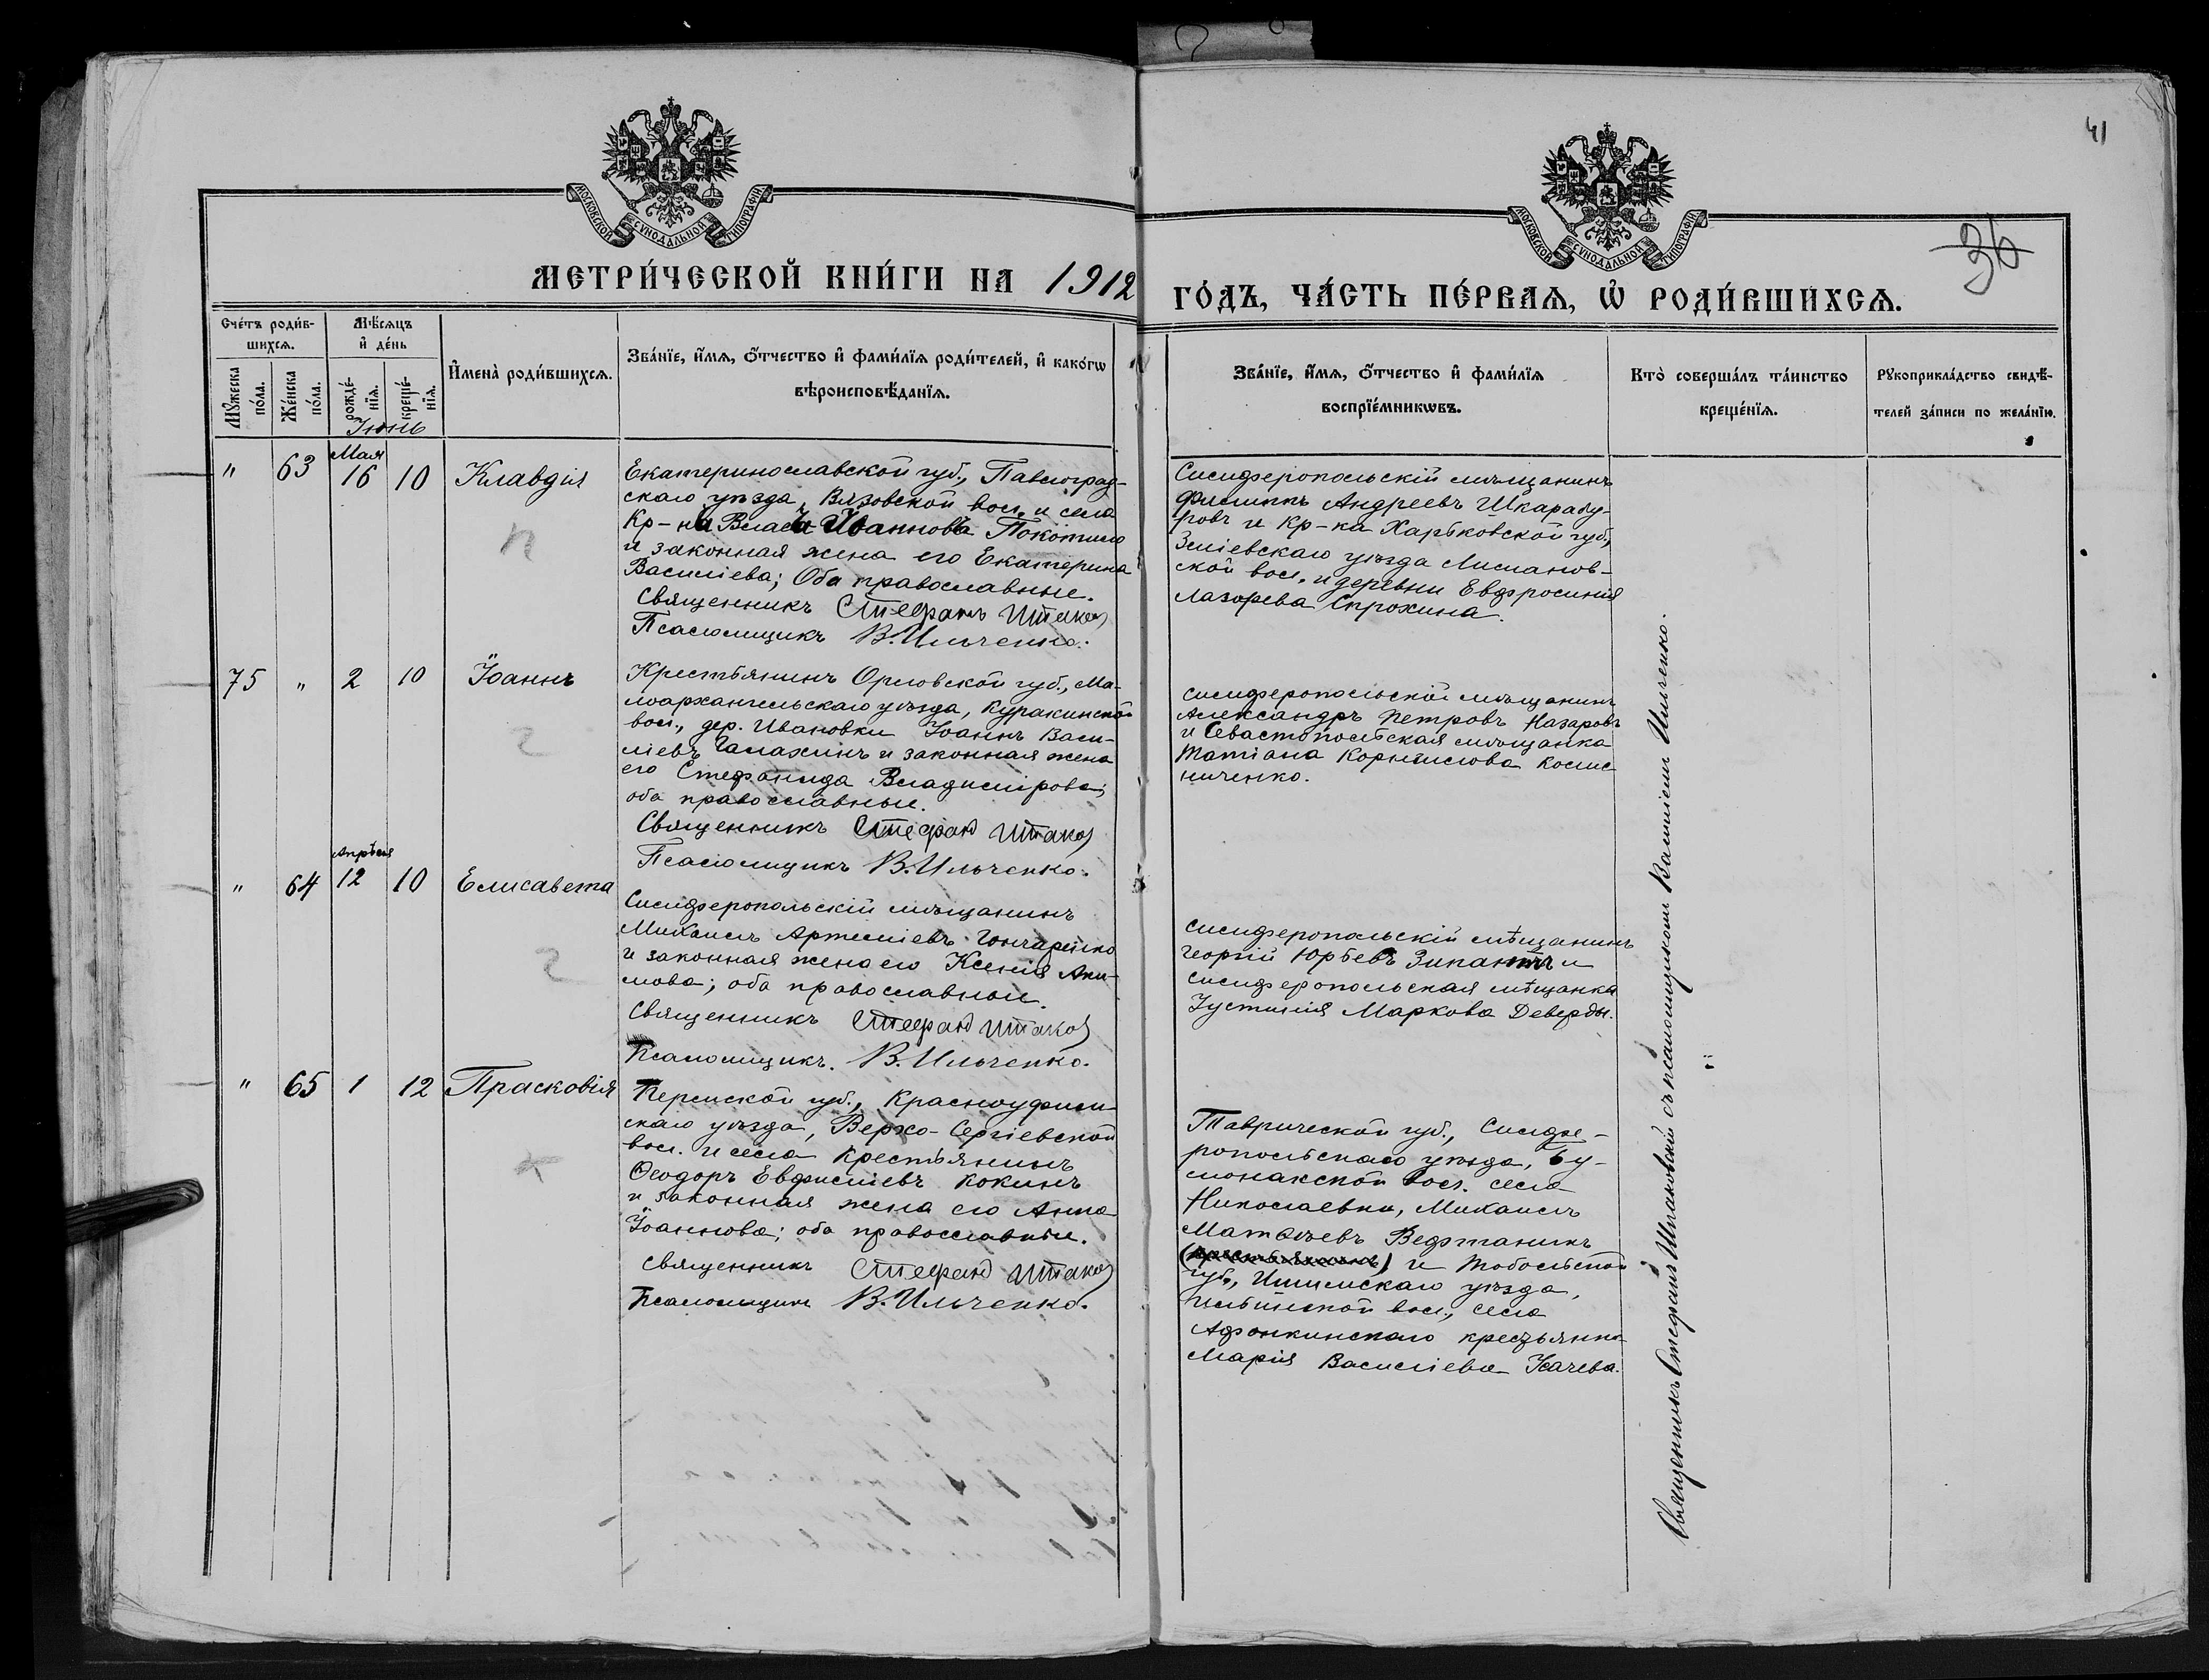 41
36
МОСКОВСКОЙ СѴНОДАЛЬНОЙ ТИПОГРАФІИ
МОСКОВСКОЙ СѴНОДАЛЬНОЙ ТИПОГРАФІИ
МЕТРИ́ЧЕСКОЙ КНИ́ГИ НА 1912
ГО́ДЪ, ЧА́СТЬ ПЕ́РВАѦ, Ѡ҆ РОДИ́ВШИХСѦ.
Сче́тъ роди́в-
шихсѧ.
Мѣ́сѧцъ
и҆ де́нь
Мꙋ́жеска
по́ла.
Же́нска
по́ла.
рожде́-
нїѧ.
креще́-
нїѧ.
И҆мена̀ роди́вшихсѧ.
Зва́нїе, и҆́мѧ, ѻ҆́тчество и҆ фами́лїѧ роди́телей, и҆ како́гѡ
вѣроисповѣ́данїѧ.
Зва́нїе, и҆́мѧ, ѻ҆́тчество и҆ фами́лїѧ
воспрїе́мникѡвъ.
Кто̀ соверша́лъ та́инство
креще́нїѧ.
Рꙋкоприкла́дство свидѣ́-
телей за́писи по жела́нїю.
Іюнь
Мая
" 63 16 10 Клавдія
Екатеринославской губ., Павлоград-
скаго уѣзда, Вязовской вол. и села
Кр-нъ Власъ Иоанновъ Покотило
и законная жена его Екатерина
Василіева; Оба православные.
Священникъ Стефанъ
Псаломщикъ В. Ильченко.
Симферопольскій мѣщанинъ
Филиппъ Андреевъ Шкарабу-
ровъ и кр-ка Харьковской губ.,
Зміевскаго уѣзда Лиманов-
ской вол. и деревни Евфросинія
Лазорева Спрохина.
75 " 2 10 Іоаннъ
Крестьянинъ Орловской губ., Ма-
лоархангельскаго уѣзда, Куракинской
вол., дер. Ивановки Іоаннъ Васи-
ліевъ Галахинъ и законная жена
его Стефанида Владимірова;
оба православные.
Священникъ Стефанъ
Псаломщикъ В. Ильченко.
Симферопольскій мѣщанинъ
Александръ Петровъ Назаровъ
и Севастопольская мѣщанка
Татіана Корнилова Колис
ниченко.
Апрѣля
" 64 12 10 Елисавета
Симферопольскій мѣщанинъ
Михаилъ Артеміевъ Гончаренко
и законная жена его Ксенія Аки-
мова; оба православные.
Священникъ Стефанъ
Псаломщикъ. В. Ильченко.
Симферопольскій мѣщанинъ
Георгій Юрьевъ и
Симферопольская мѣщанка
Іустинія Маркова Деверды.
" 65 1 12 Прасковія
Пермской губ., Красноуфим-
скаго уѣзда, Верхо-Сергіевской
вол. и села крестьянинъ
Ѳеодоръ Евфиміевъ Кокинъ
и законная жена его Анна
Іоаннова; оба православные.
Священникъ Стефанъ
Псаломщикъ В. Ильченко.
Таврической губ., Симфе-
ропольскаго уѣзда, Бу-
лонакской вол. села
Николаевки, Михаилъ
Матѳѣевъ Ведрманикъ
и Тобольской
губ., Ишимскаго уѣзда,
вол., села
Афонкинскаго крестьянка
Марія Василіева Усачева.
Священникъ Стефанъ Шпаковскій съ псаломщикомъ Василіемъ Ильченко.